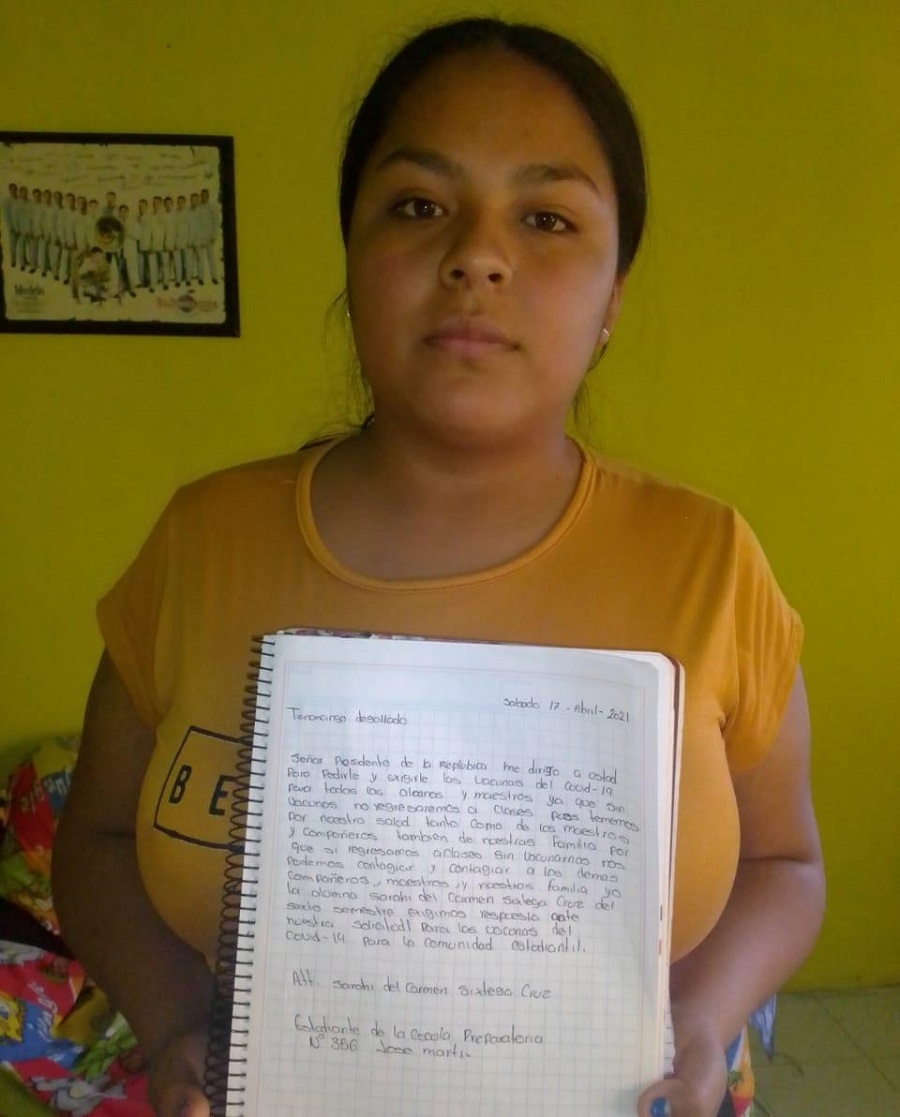 Medelo
BE
Sabado 17 - Abril - 2021
Tenancingo degollado
Señor Presidente de la republica me dirijo a usted
para Pedirle y exigirle las vacunas del Covid-19
para todos los alumnos y maestros ya que sin
vacunas no regresaremos a clases pues tememos
por nuestra salud tanto como de los maestros
y compañeros tambien de nuestras familia por
que si regresamos a clases sin vacunarnos nos
Podemos contagiar y contagiar a los demas
compañeros, maestros, y nuestras familia yo
la alumna Sarahi del Carmen Sixtega Cruz del
sexto semestre exigimos respuesta ante
nuestra solicitud para las vacunas del
Covid-19 para la comunidad estudiantil.
Att. Sarahi del Carmen Sixtega Cruz
Estudiante de la Escuela Preparatoria
N° 386 Jose marti.